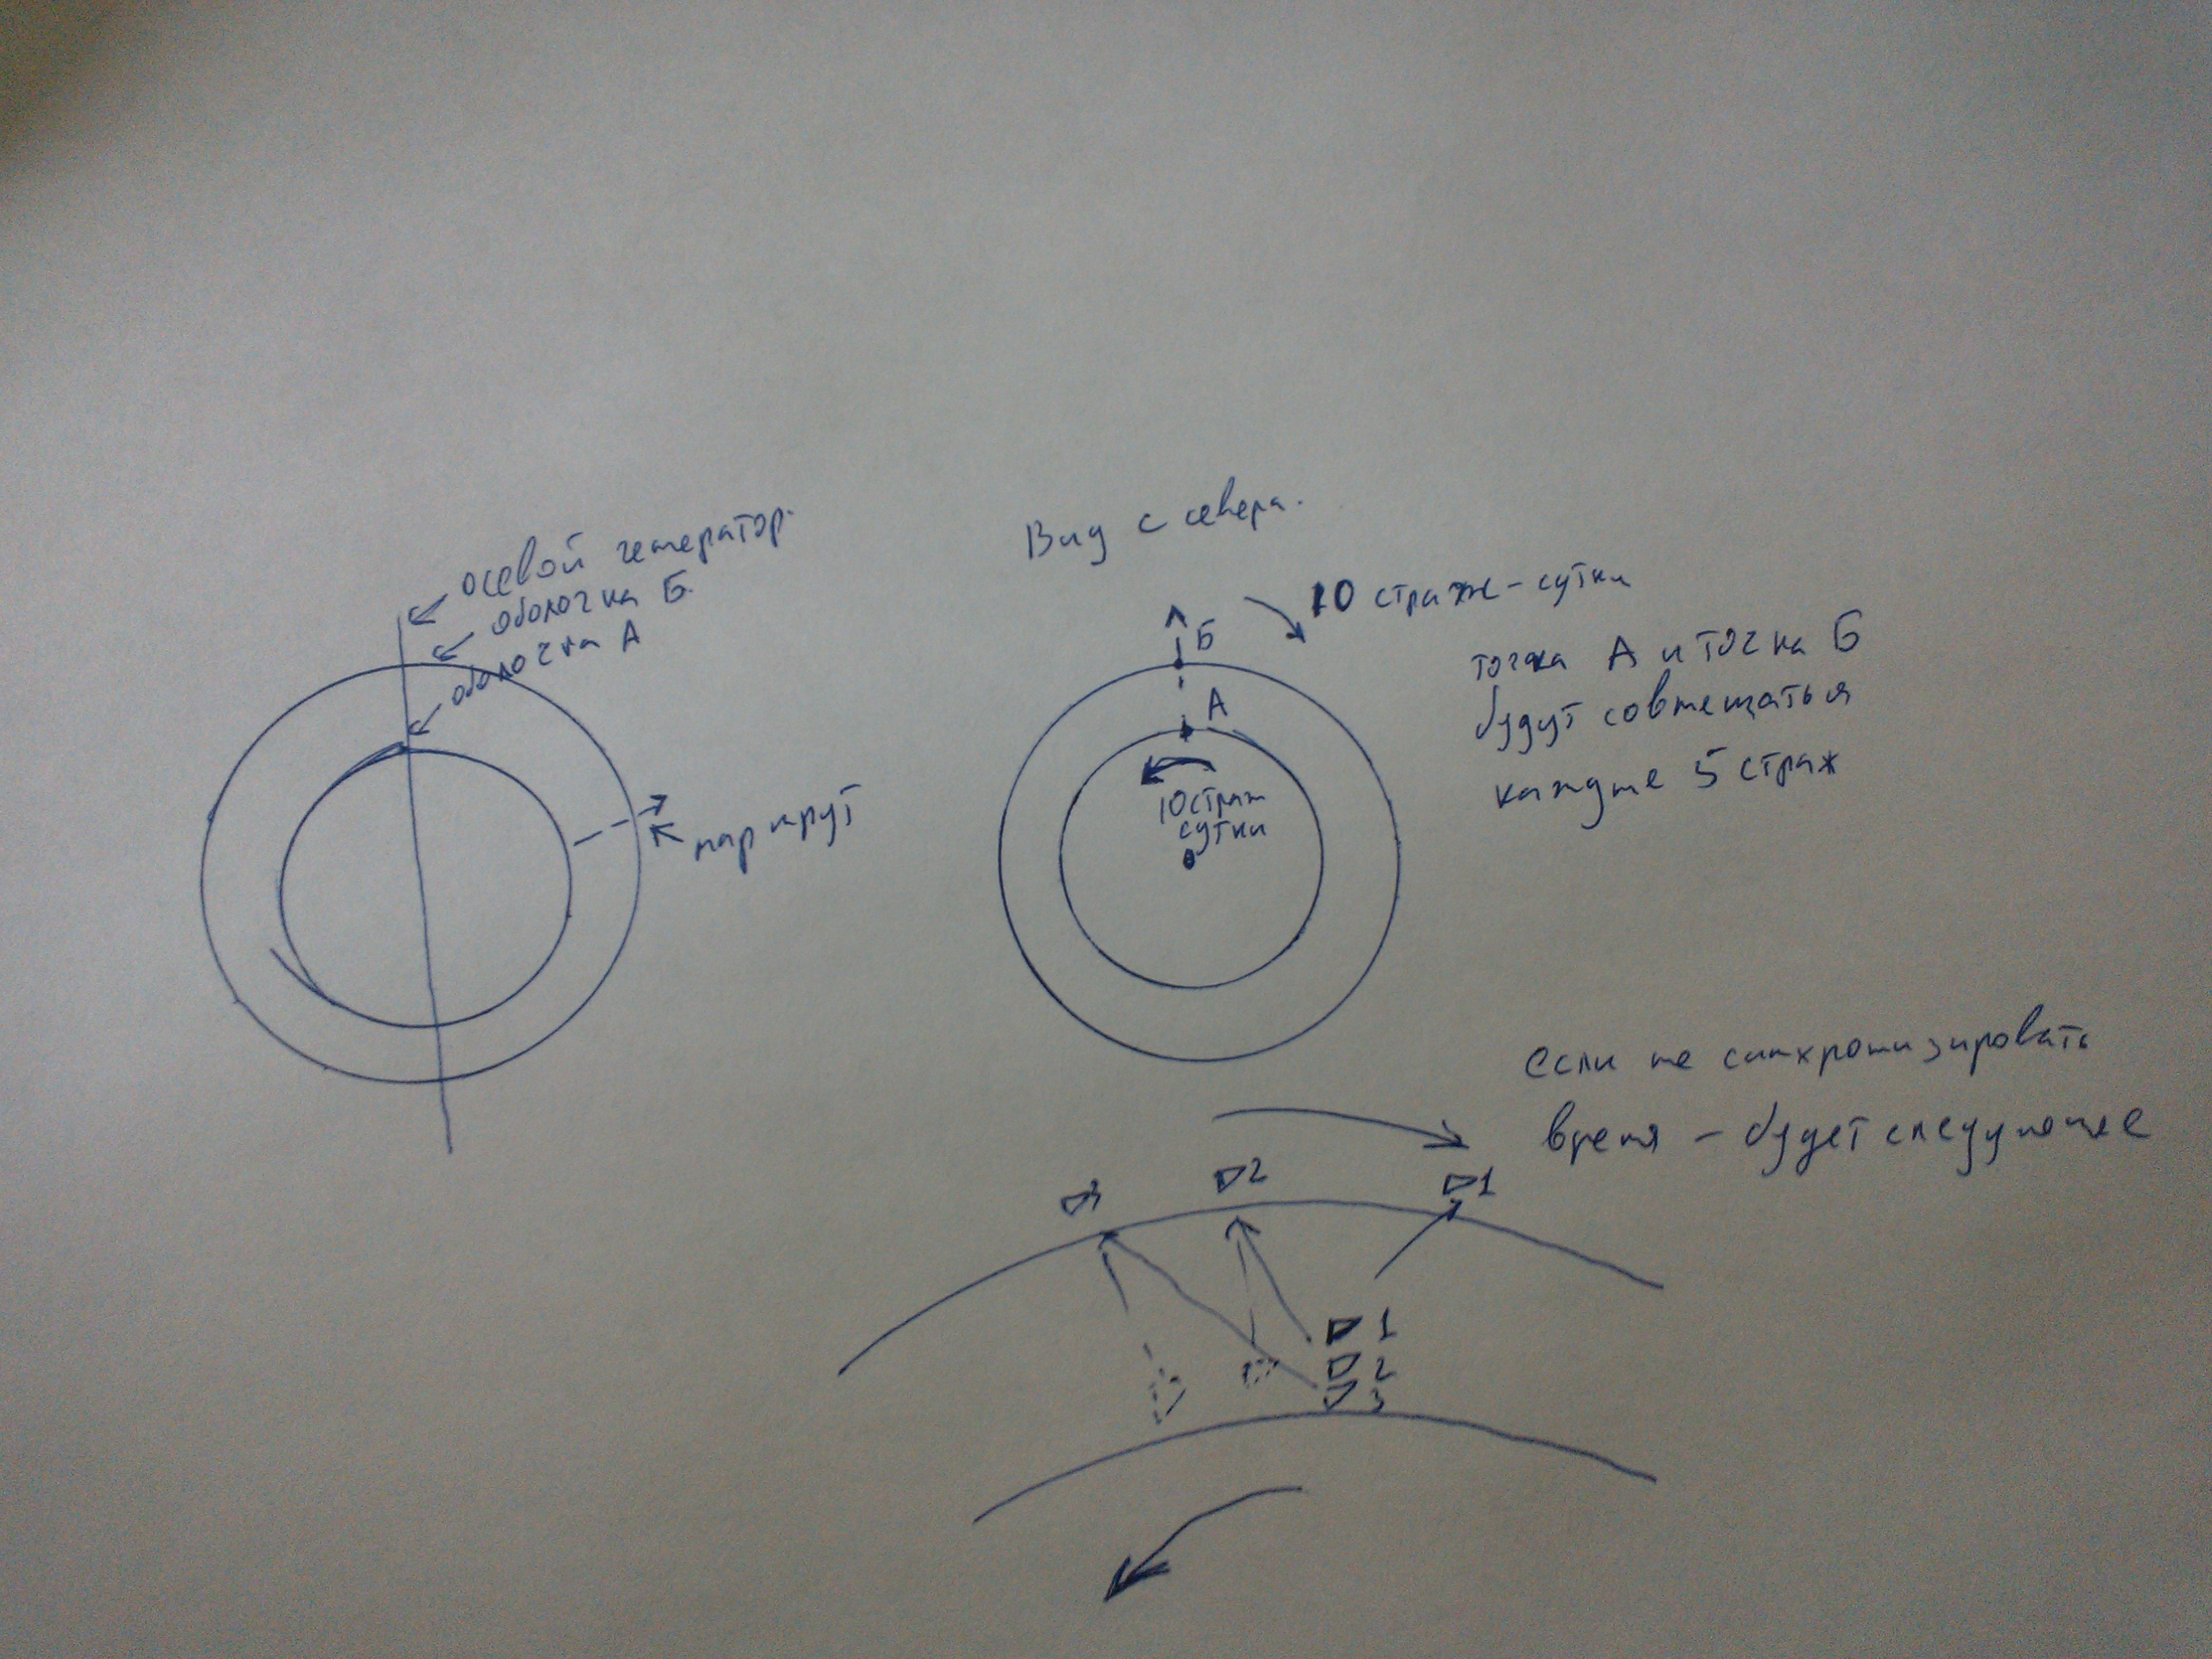 осевой генератор.
оболочка Б.
оболочка А
маршрут
Вид с севера.
10 страж-сутки
Б
А
10 страж
сутки
точка А и точка Б
будут совмещаться
каждые 5 страж
если не синхронизировать
время - будет следующее
3
2
1
1
2
3